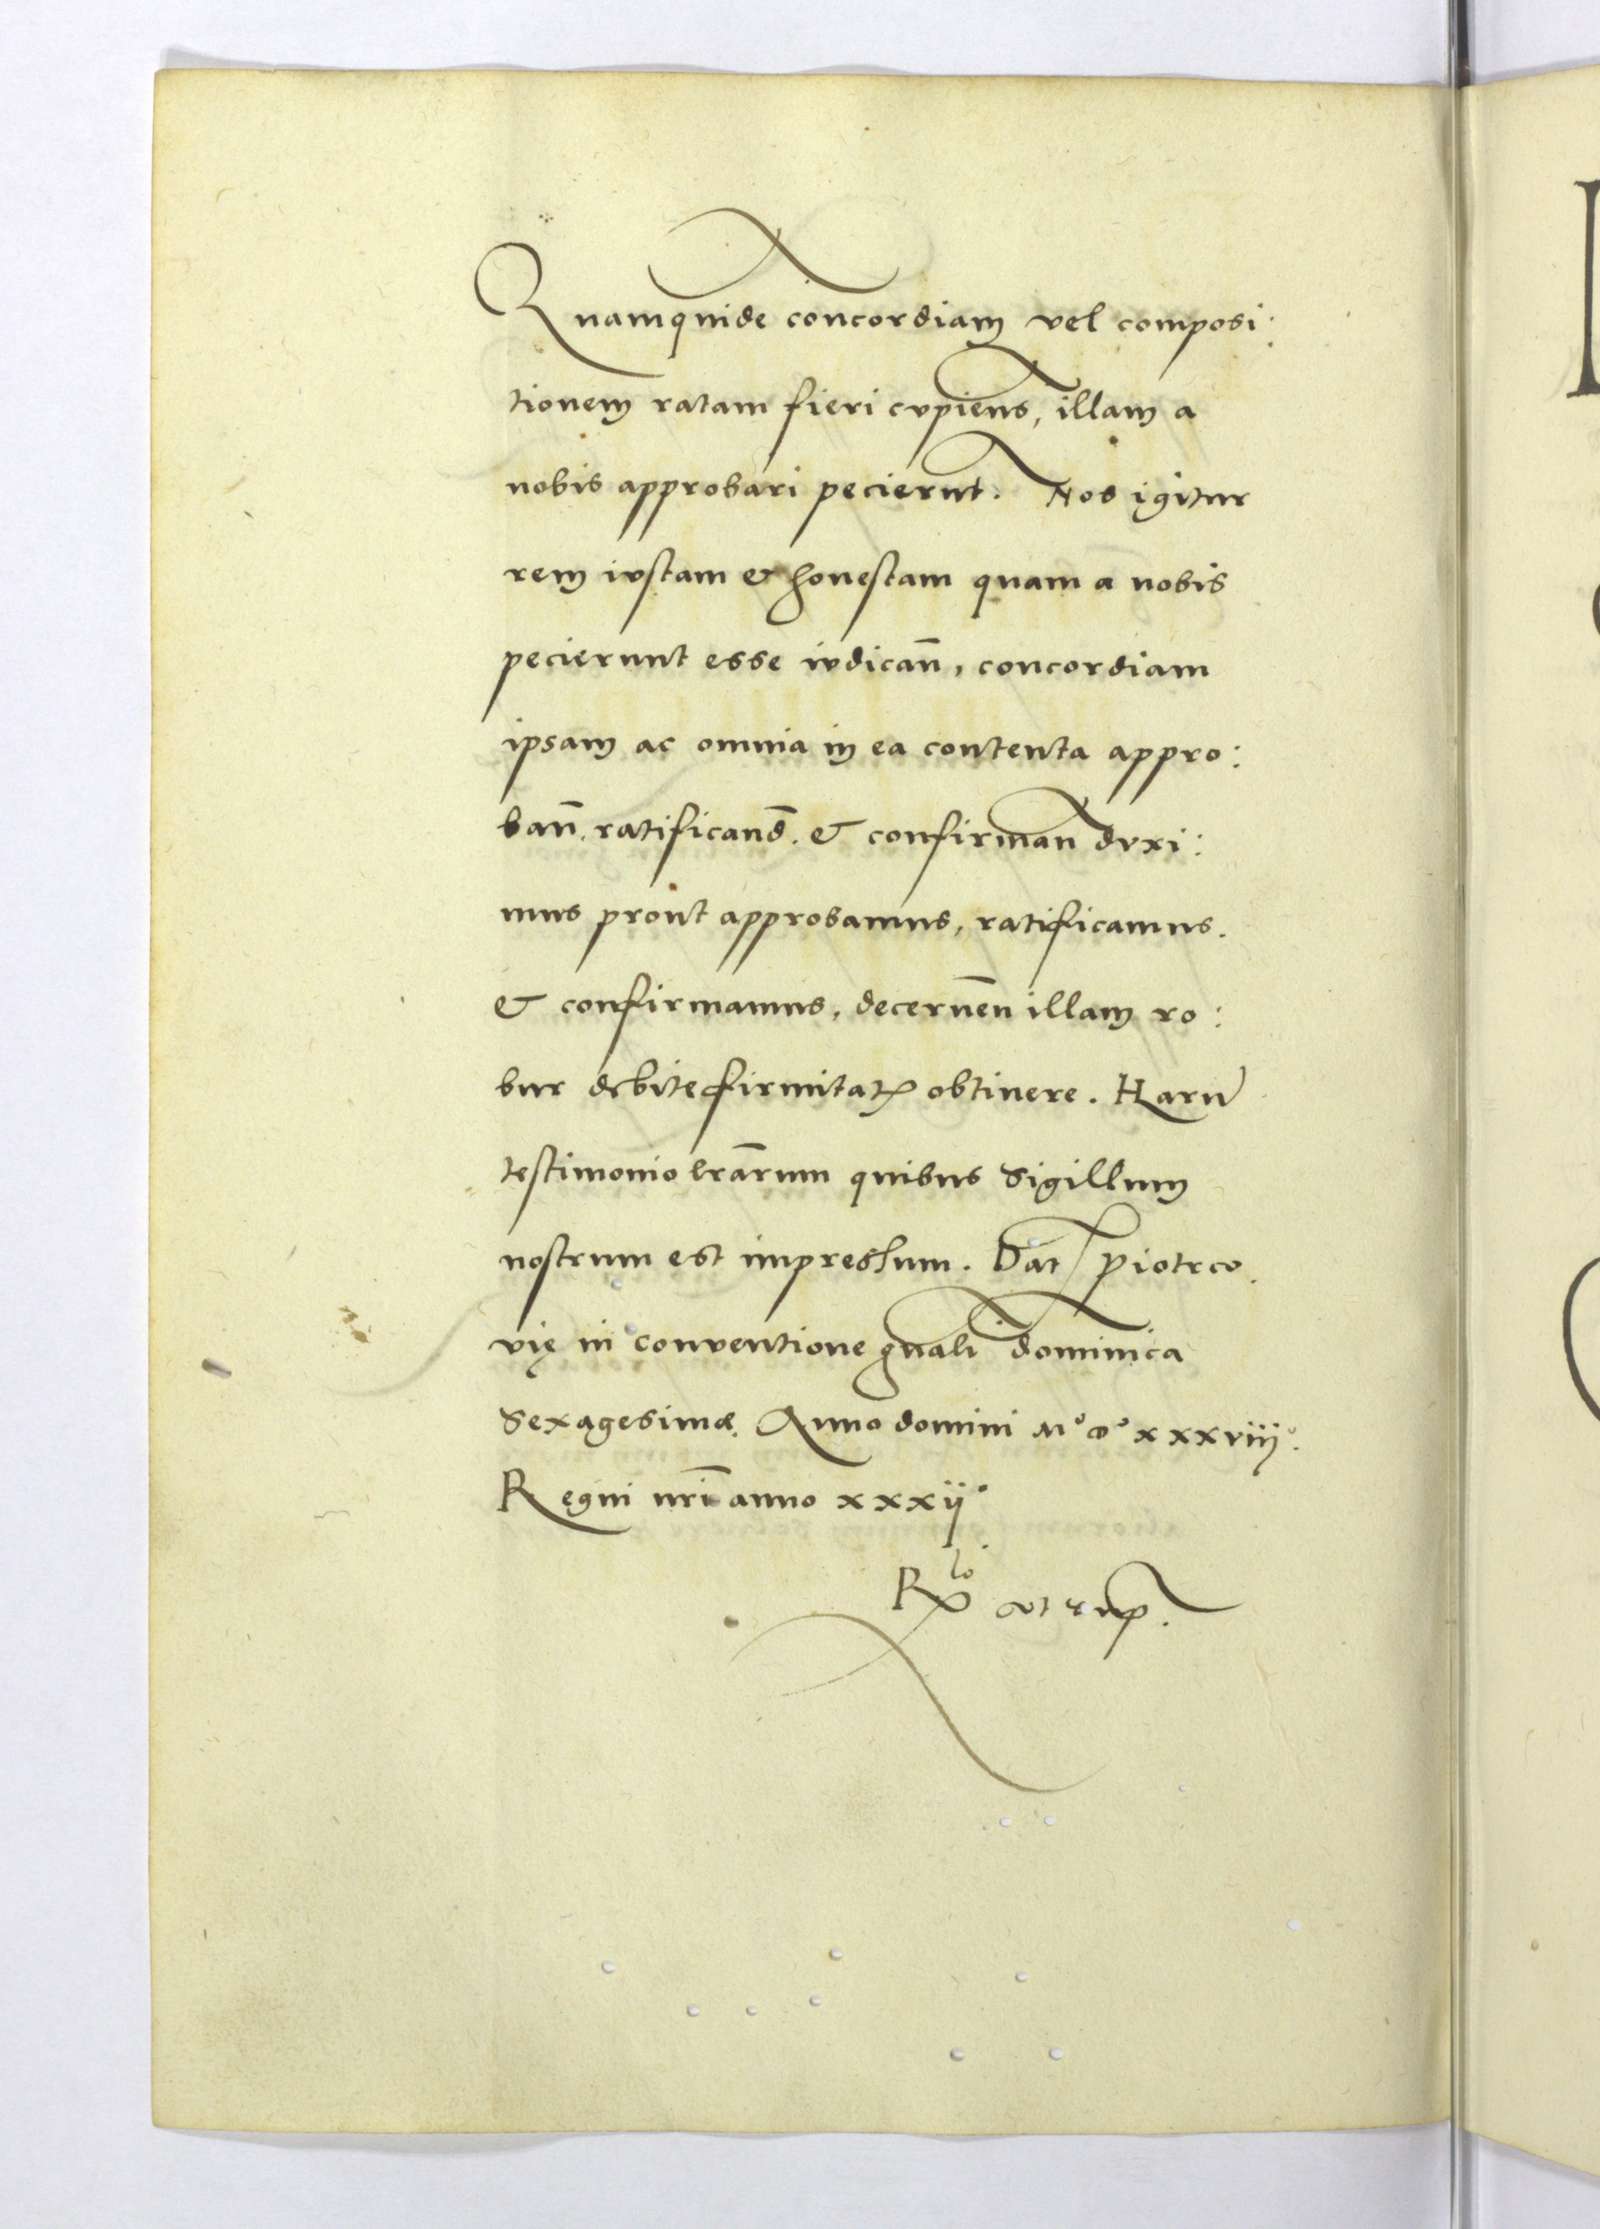 Quamquide concordiam vel composi:
tionem ratam fieri cupiens, illam a
nobis approbari pecierunt. Nos igitur
rem iustam & honestam quam a nobis
pecierunt esse iudican̄, concordiam
ipsam ac omnia in ea contenta appro:
ban̄. ratificand̄. & confirman duxi:
mus prout approbamus, ratificamus.
& confirmamus, decernēn illam ro:
bur debite firmitatꝭ obtinere. Harū
testimonio lrārum quibus Sigillum
nostrum est impressum. Dat Piotrco
vię in conventione gnali dominica
Sexagesimæ. Anno domini Mº Dº xxxviiiº.
Regni nrī anno xxxijº